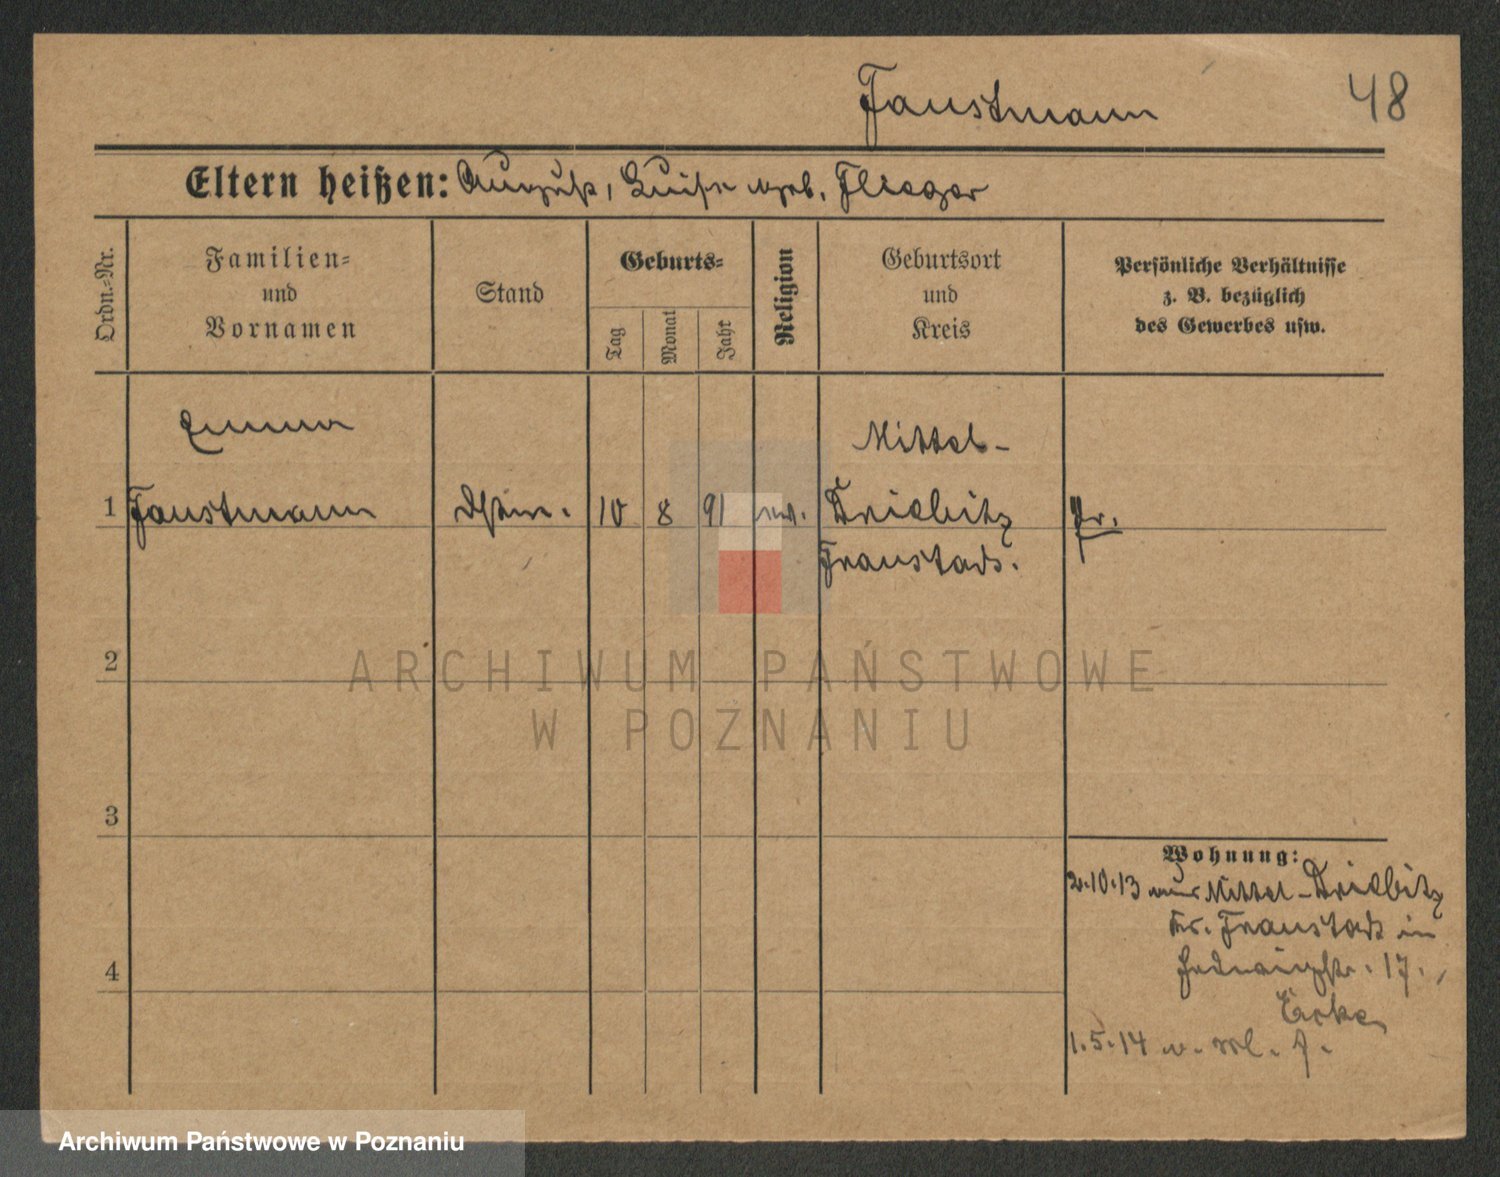 Faustmann
48
Eltern heißen: August, Luise geb. Flieger
Ordn.-Nr.
Familien-
und
Vornamen
Stand
Geburts-
Tag
Monat
Jahr
Religion
Geburtsort
und
Kreis
Persönliche Verhältnisse
z. B. bezüglich
des Gewerbes usw.
Emma
Mittel-
1 Faustmann 10 8 91 Driebitz Pr.
Fraustadt.
ARCHIWUM PAŃSTWOWE
W POZNANIU
2
3
4
Wohnung:
2.10.13 aus Mittel-Driebitz
Kr. Fraustadt in
Hedwigstr. 17.,
1.5.14
Archiwum Państwowe w Poznaniu